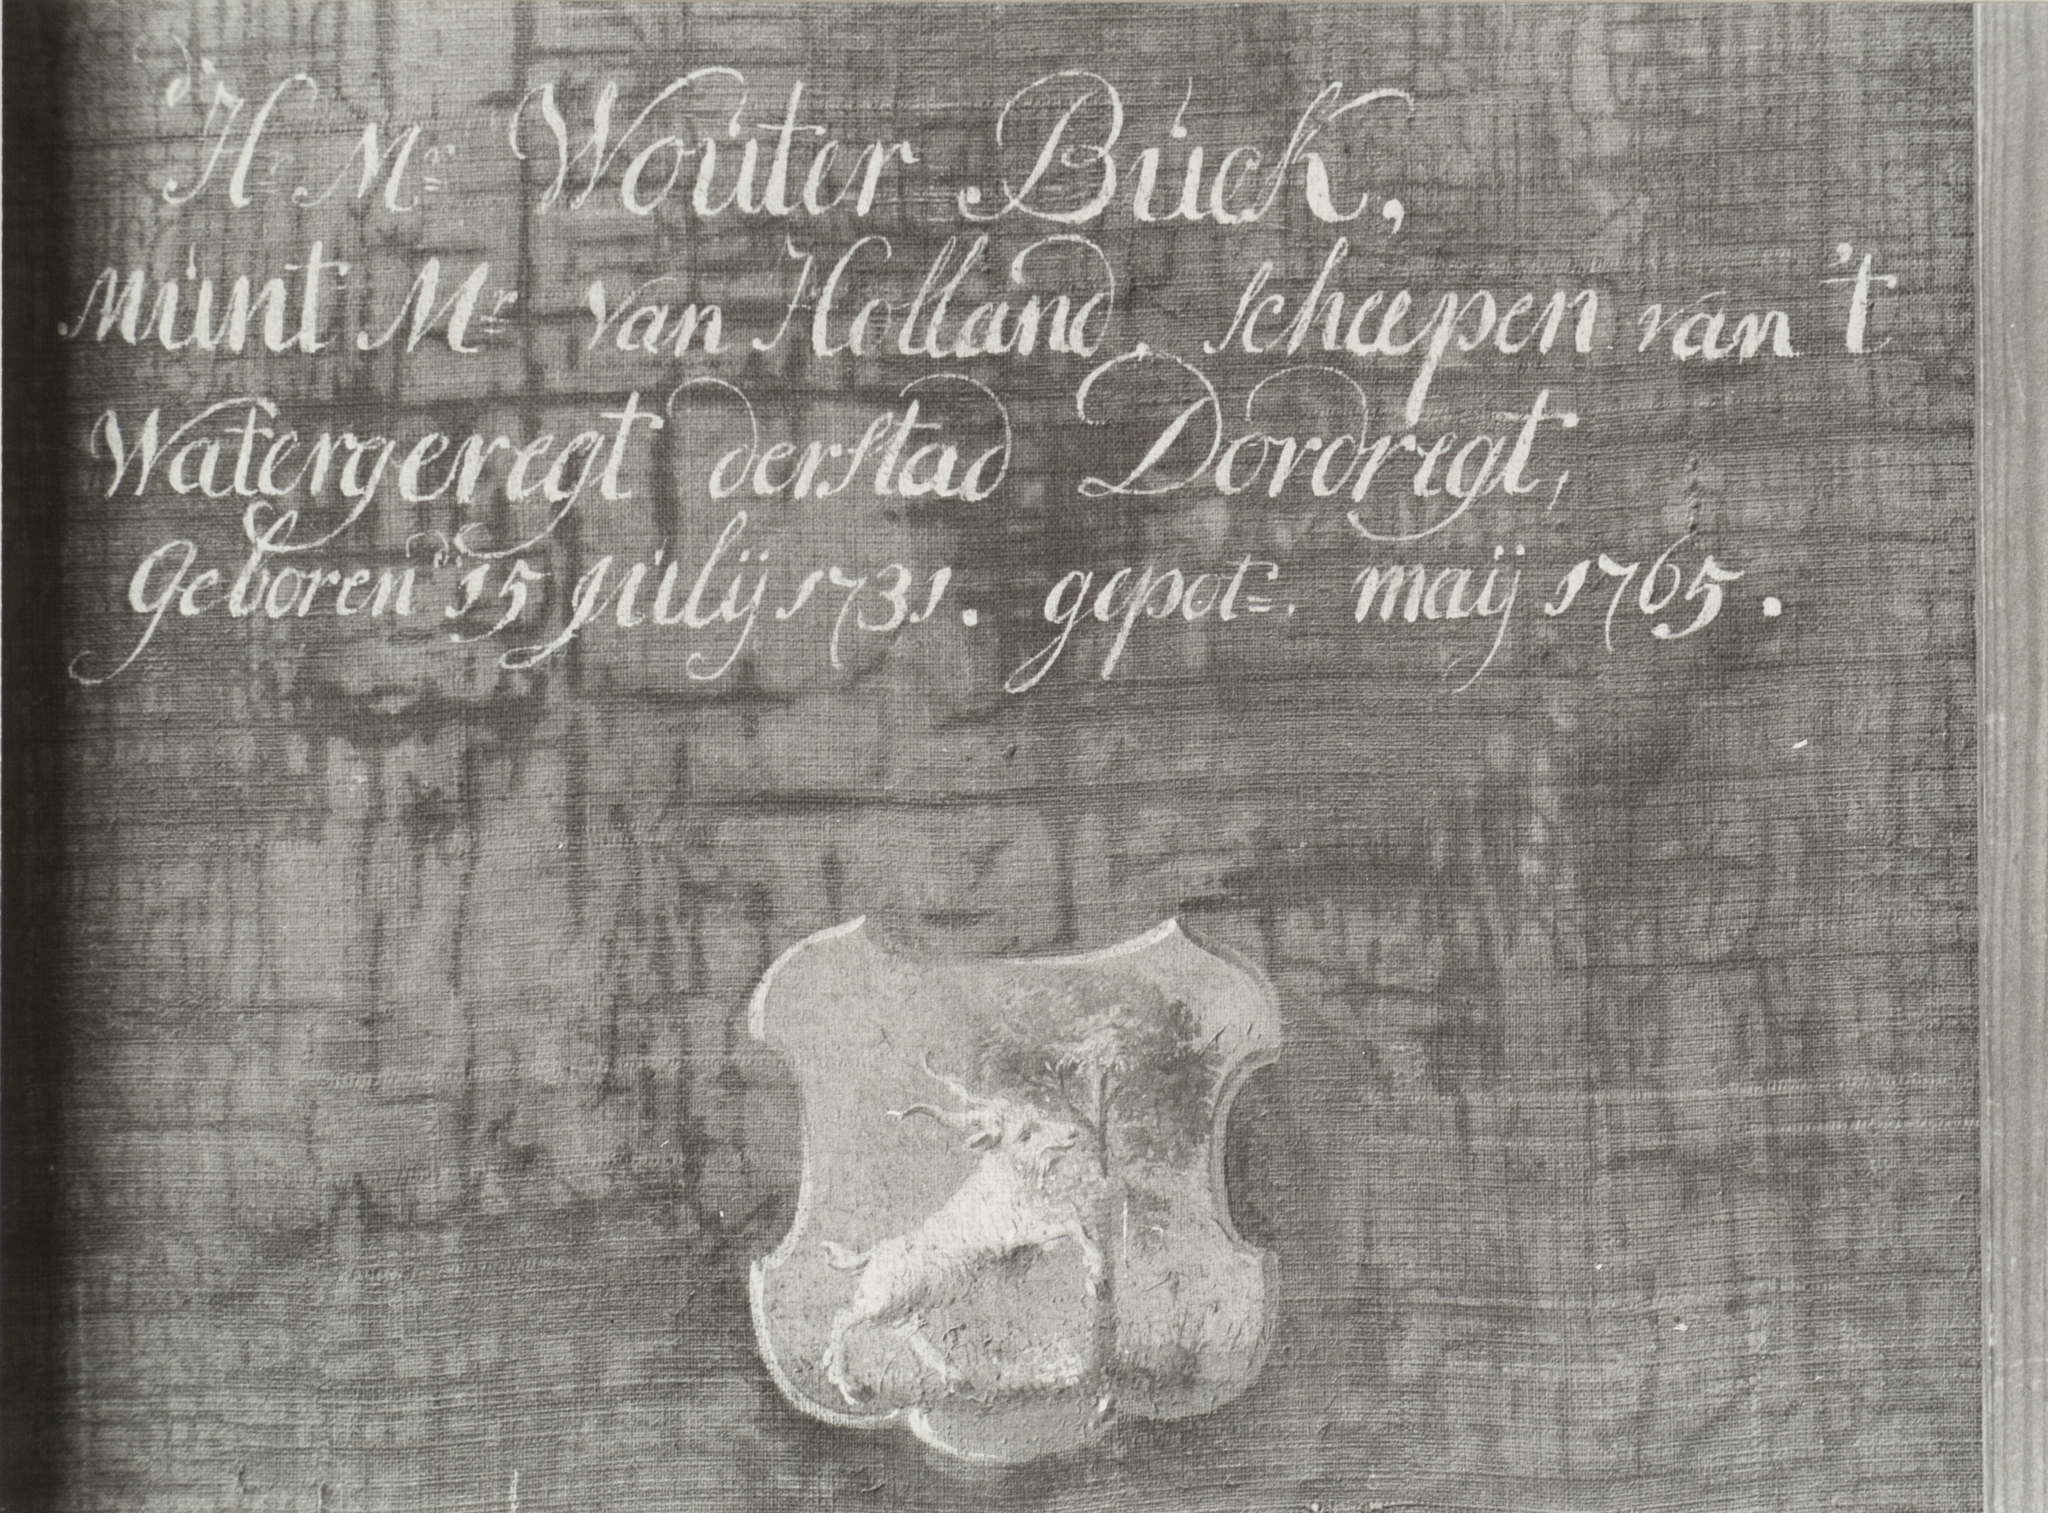 d' Hr. Mr. Wouter Buck,
munt Mr. van Holland, scheepen van 't
Watergeregt der stad Dordregt,
Geboren dn 15 Julij 1731. gepot=. maij 1765.